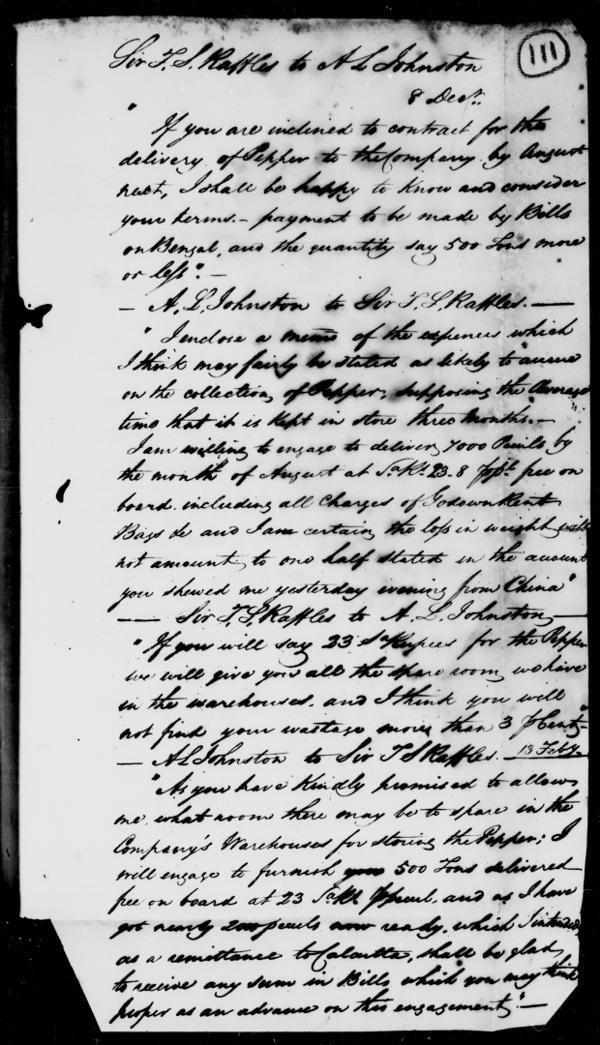 111
Sir T. S. Raffles to A L Johnston
8 Decr.
"If you are inclined to contract for the
delivery of Pepper to the Company by August
next, I shall be happy to know and consider
your terms. – payment to be made by Bills
on Bengal, and the quantity say 500 Tons more
or less". –
– A. L. Johnston to Sir T. S. Raffles. –
"I enclose a memo of the expences which
I think may fairly be stated as likely to accrue
on the collection of Pepper, supposing the Average
time that it is kept in store three months. –
I am willing to engage to deliver 7000 Peculs by
the month of August at Sa. Rs. 23. 8 free on
board including all Charges of Godown Rent
Bags &c and I am certain the loss in weight will
not amount to one half stated in the account
you shewed me yesterday evening from China"
– – Sir T. S. Raffles to A. L. Johnston –
"If you will say 23 Sa Rupees for the Pepper
we will give you all the spare room we have
in the warehouses. and I think you will
not find your wastage more than 3 P Cent" –
– A L Johnston to Sir T S Raffles. 13 Feby.
"As you have kindly promised to allow
me what room there may be to spare in the
Company's Warehouses for storing the Pepper; I
will engage to furnish you 500 Tons delivered
free on board at 23 Sa Rs P pecul. and as I have
got nearly 2000 peculs now ready. which I intended
as a remittance to Calcutta, shall be glad
to receive any sum in Bills which you may think
proper as an advance on this engagement". –